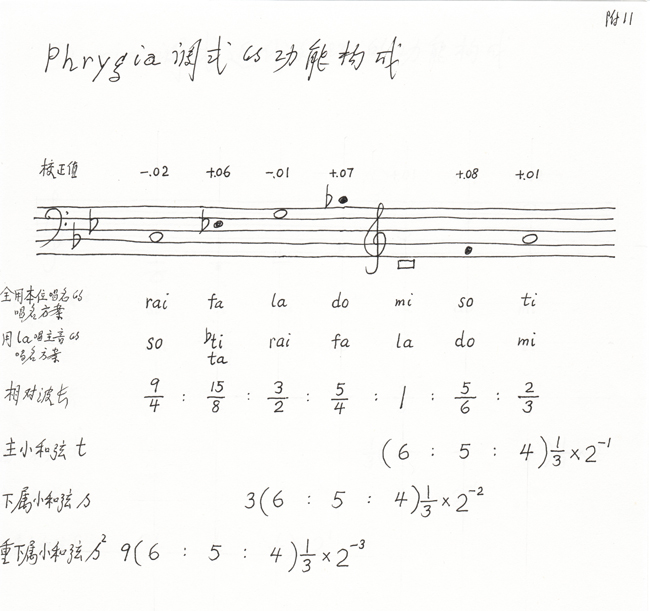 附11
Phrygia调式的功能构成
校正值 -.02 +.06 -.01 +.07 +.08 +.01
全用本位唱名的
唱名方案 rai fa la do mi so ti
用la唱主音的
唱名方案 so ♭ti rai fa la do mi
ta
相对波长 9/4 : 15/8 : 3/2 : 5/4 : 1 : 5/6 : 2/3
主小和弦t (6 : 5 : 4)1/3×2⁻¹
下属小和弦s 3(6 : 5 : 4)1/3×2⁻²
重下属小和弦s² 9(6 : 5 : 4)1/3×2⁻³